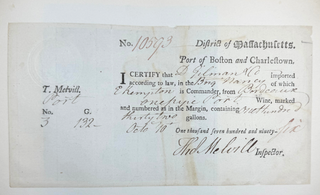 No. 10593 District of Massachusetts.
Port of Boston and Charlestown.
I CERTIFY that D. Gilman & Co Imported
according to law, in the Brig Nancy of which
E Kempton is Commander, from Bordeaux
one pipe Port Wine, marked
and numbered as in Margin, containing One hundred
thirty two gallons.
Octo 10
One thousand seven hundred and ninety-Six
Thos. Melvill Inspector.
T. Melvill,
Port
No. G.
3 132